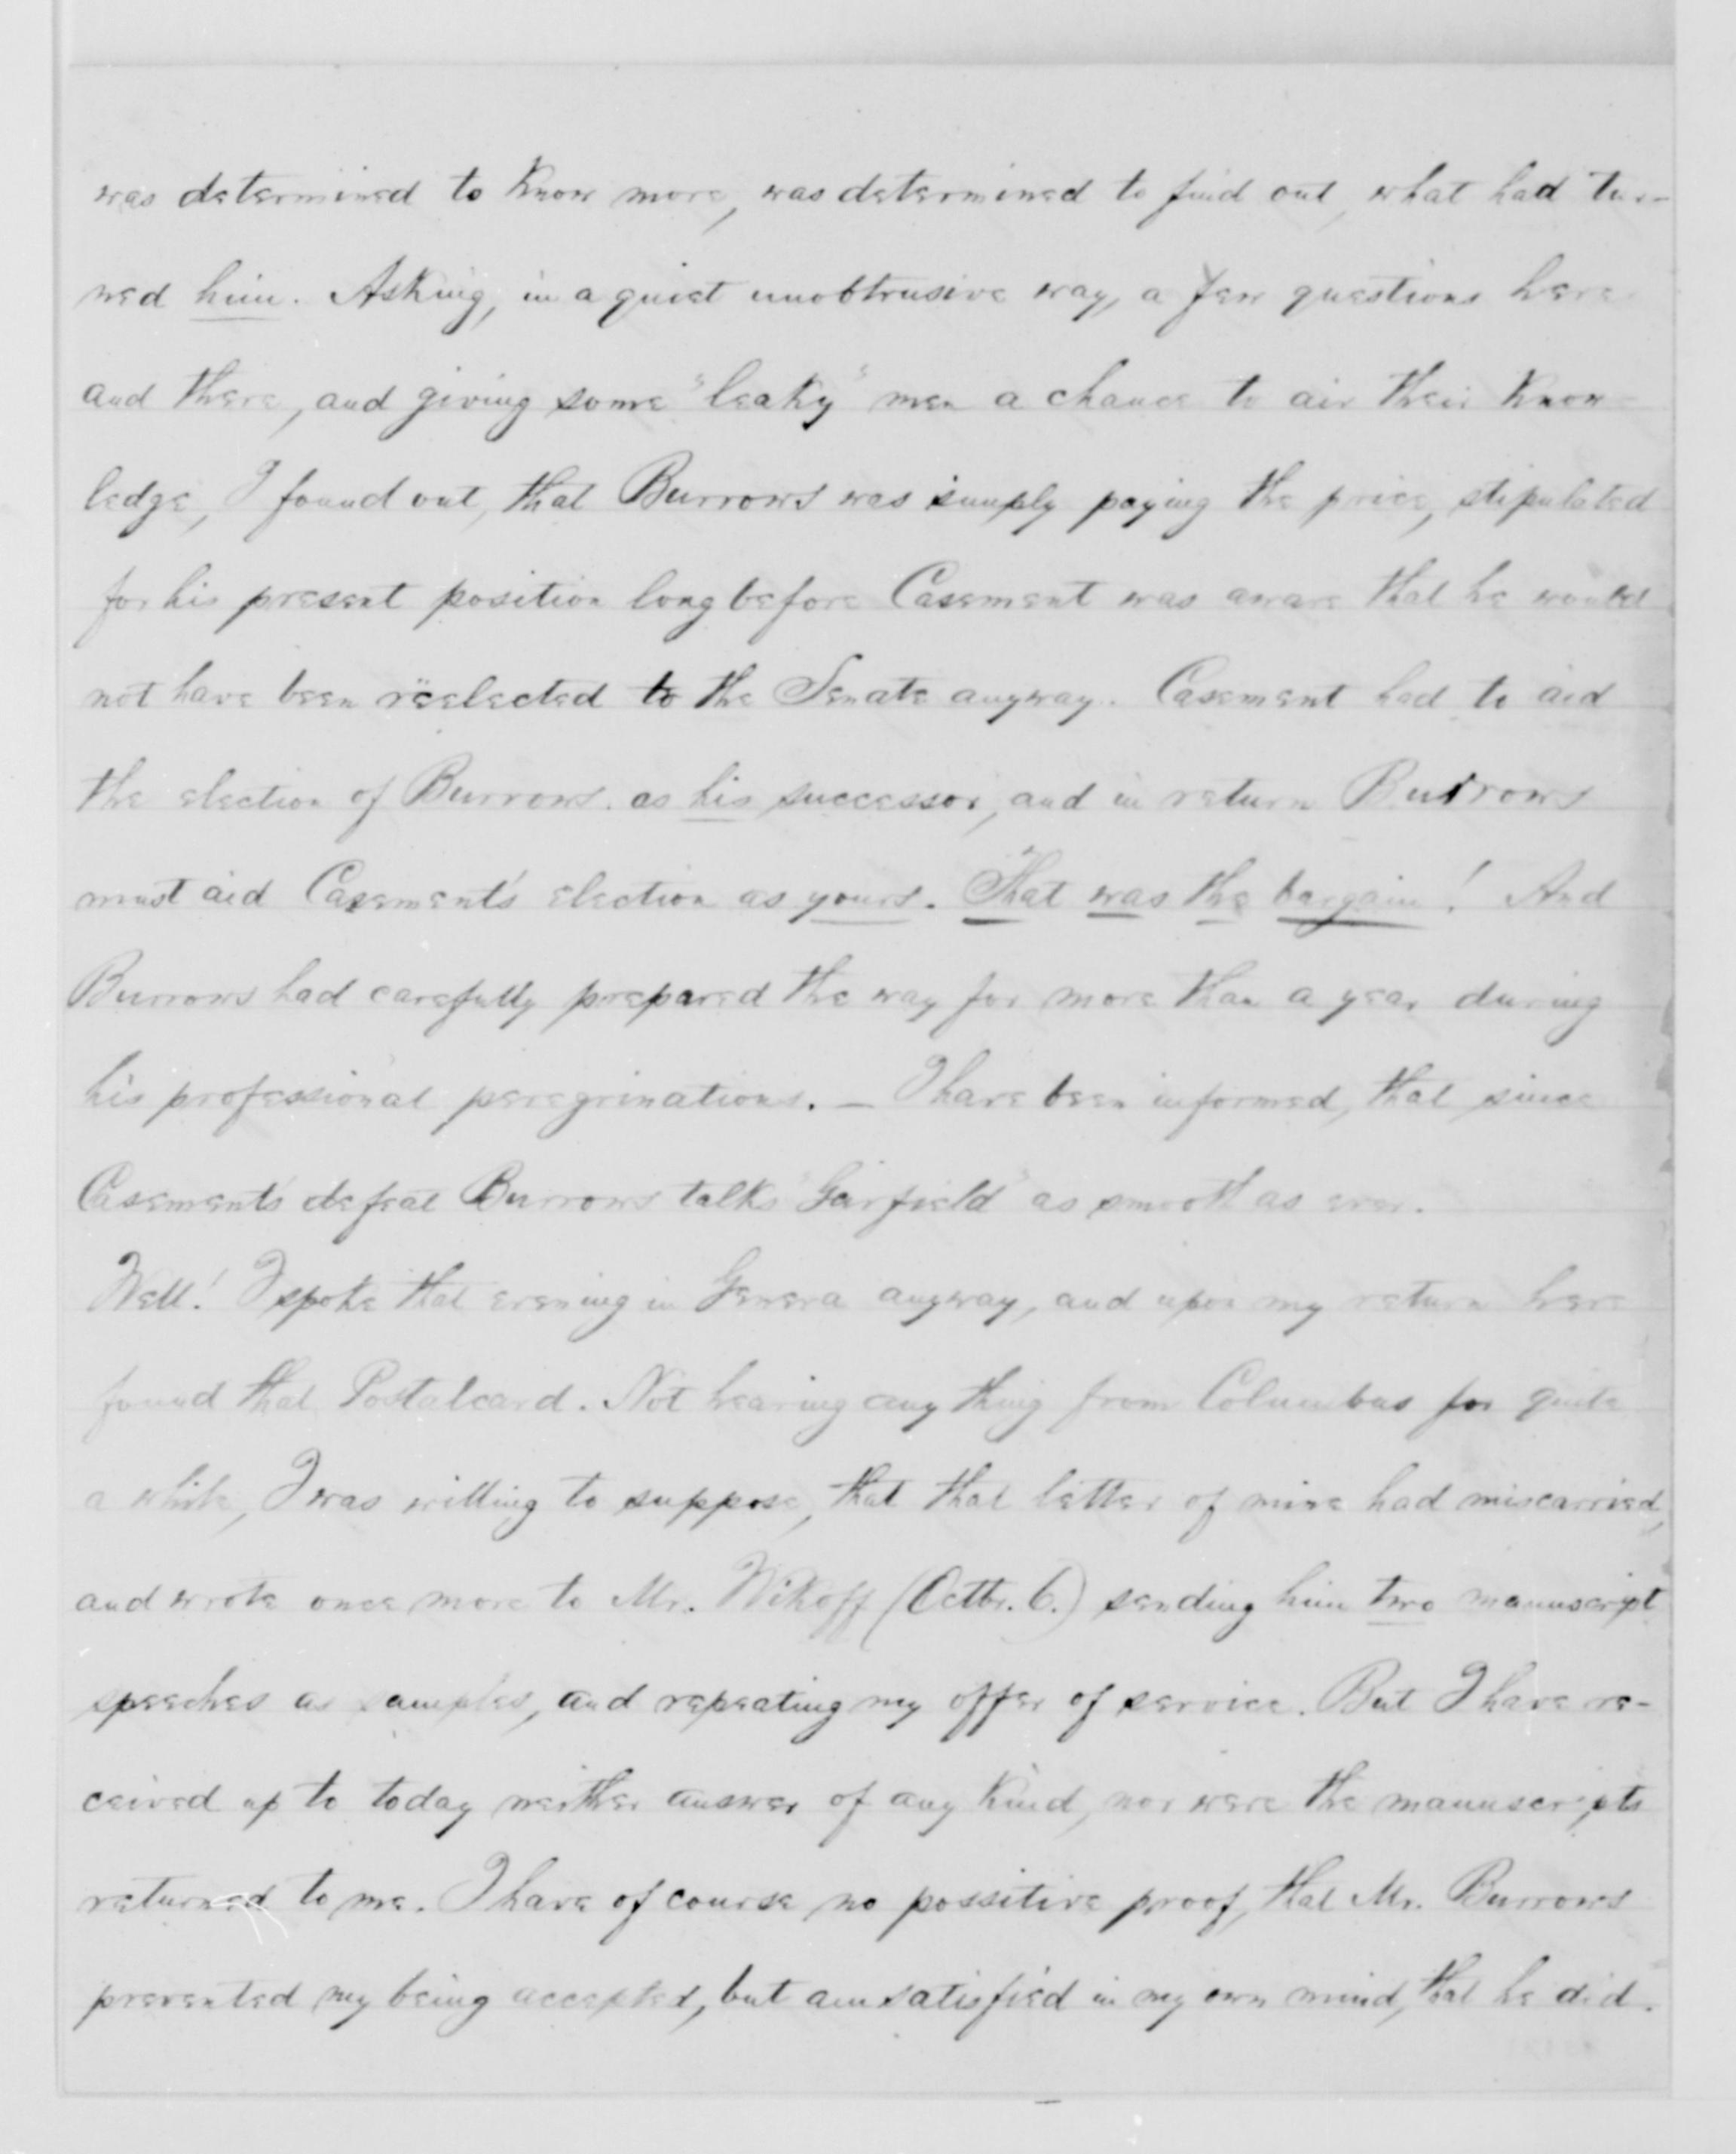 was determined to know more, was determined to find out, what had tur-
ned him. Asking, in a quiet unobtrusive way, a few questions here
and there, and giving some "leaky" men a chance to air their know-
ledge, I found out, that Burrows was simply paying the price, stipulated
for his present position long before Casement was aware that he would
not have been rëelected to the Senate anyway. Casement had to aid
the election of Burrows as his successor, and in return Burrows
must aid Casement's election as yours. That was the bargain! And
Burrows had carefully prepared the way for more than a year during
his professional peregrinations. — I have been informed, that since
Casement's defeat Burrows talks "Garfield" as smooth as ever.
Well! I spoke that evening in Geneva anyway, and upon my return here
found that Postalcard. Not hearing any thing from Columbus for quite
a while, I was willing to suppose, that that letter of mine had miscarried,
and wrote once more to Mr. Wikoff (Octbr. 6.) sending him two manuscript
speeches as samples, and repeating my offer of service. But I have re-
ceived up to today neither answer of any kind, nor were the manuscripts
returned to me. I have of course no possitive proof, that Mr. Burrows
prevented my being accepted, but am satisfied in my own mind, that he did.